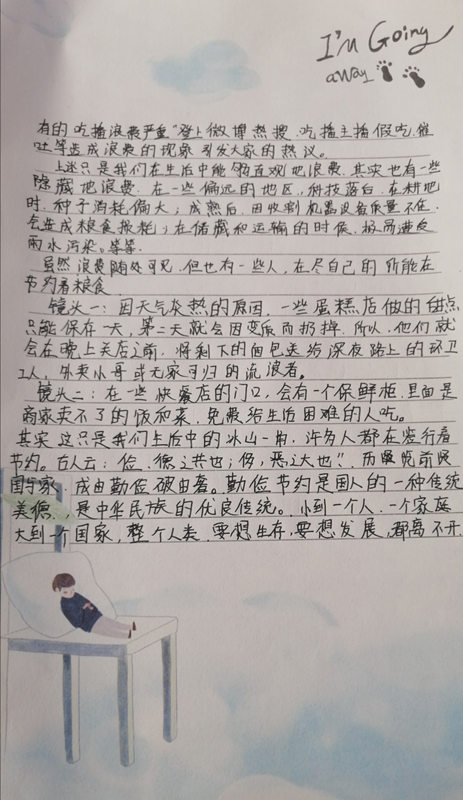 I'm Going
away
有的吃播浪费严重"登上微博热搜.吃播主播假吃.催
吐等造成浪费的现象引发大家的热议。
上述只是我们在生活中能够直观地浪费.其实也有一些
隐藏地浪费.在一些偏远的地区,科技落后.在耕地
时.种子消耗偏大;成熟后.因收割机器设备质量不佳.
会造成粮食损耗;在储藏和运输的时候.极易遭受
雨水污染.等等.
虽然浪费随处可见.但也有一些人,在尽自己的所能在
节约着粮食.
镜头一:因天气炎热的原因.一些蛋糕店做的甜点
只能保存一天,第二天就会因变质而扔掉.所以.他们就
会在晚上关店之前.将剩下的面包送给深夜路上的环卫
工人,外卖小哥或无家可归的流浪者。
镜头二:在一些快餐店的门口,会有一个保鲜柜.里面是
商家卖不了的饭和菜,免费给生活困难的人吃。
其实这只是我们生活中的冰山一角.许多人都在践行着
节约。古人云:俭.德之共也;侈,恶之大也".历览前贤
国与家.成由勤俭破由奢。勤俭节约是国人的一种传统
美德.是中华民族的优良传统。小到一个人.一个家庭
大到一个国家,整个人类.要想生存,要想发展,都离不开